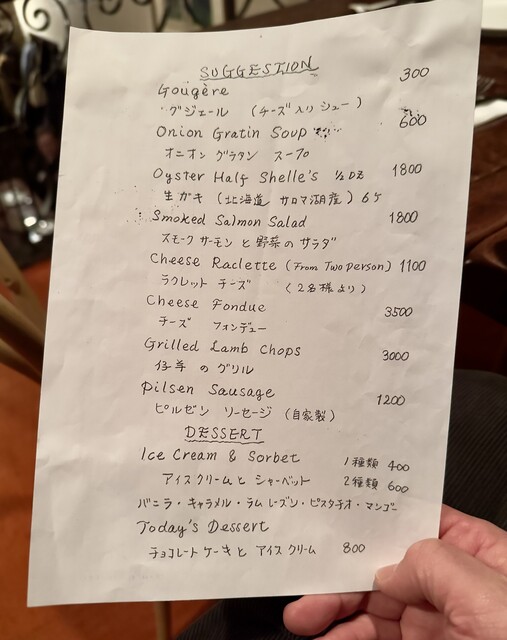 SUGGESTION
Gougère 300
グジェール (チーズ入りシュー)
Onion Gratin Soup 600
オニオン グラタン スープ
Oyster Half Shelle's ½ DZ 1800
生ガキ (北海道 サロマ湖産) 6ヶ
Smoked Salmon Salad 1800
スモーク サーモン と 野菜 の サラダ
Cheese Raclette (From Two person) 1100
ラクレット チーズ (2名様より)
Cheese Fondue 3500
チーズ フォンデュー
Grilled Lamb Chops 3000
仔羊 の グリル
Pilsen Sausage 1200
ピルゼン ソーセージ (自家製)
DESSERT
Ice Cream & Sorbet 1種類 400
アイスクリームと シャーベット 2種類 600
バニラ・キャラメル・ラムレーズン・ピスタチオ・マンゴー
Today's Dessert
チョコレートケーキと アイスクリーム 800